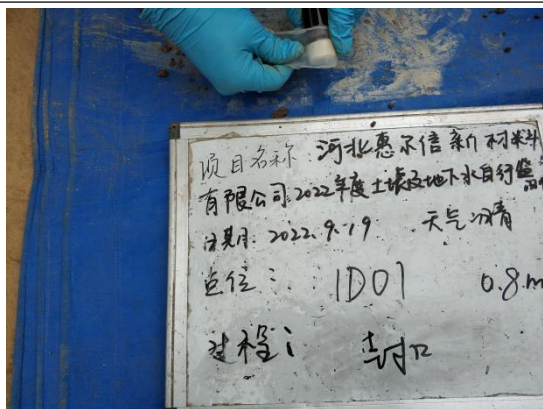 项目名称 河北惠尔信新材料
有限公司2022年度土壤及地下水自行监
日期: 2022.9.19 天气:晴
点位: 1D01 0.8m
过程: 封口